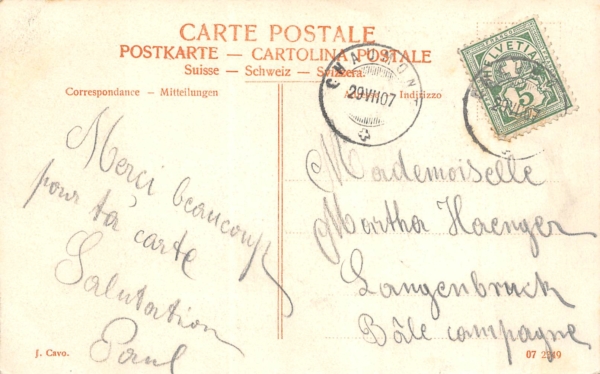 CARTE POSTALE
POSTKARTE — CARTOLINA POSTALE
Suisse — Schweiz — Svizzera.
Correspondance — Mitteilungen
Indirizzo
CHAUMONT
29.VII.07
HELVETIA
5
Merci beaucoup
pour ta carte
Salutation
Paul
Mademoiselle
Martha Haenger
Langenbruck
Bâle campagne
J. Cavo.
07